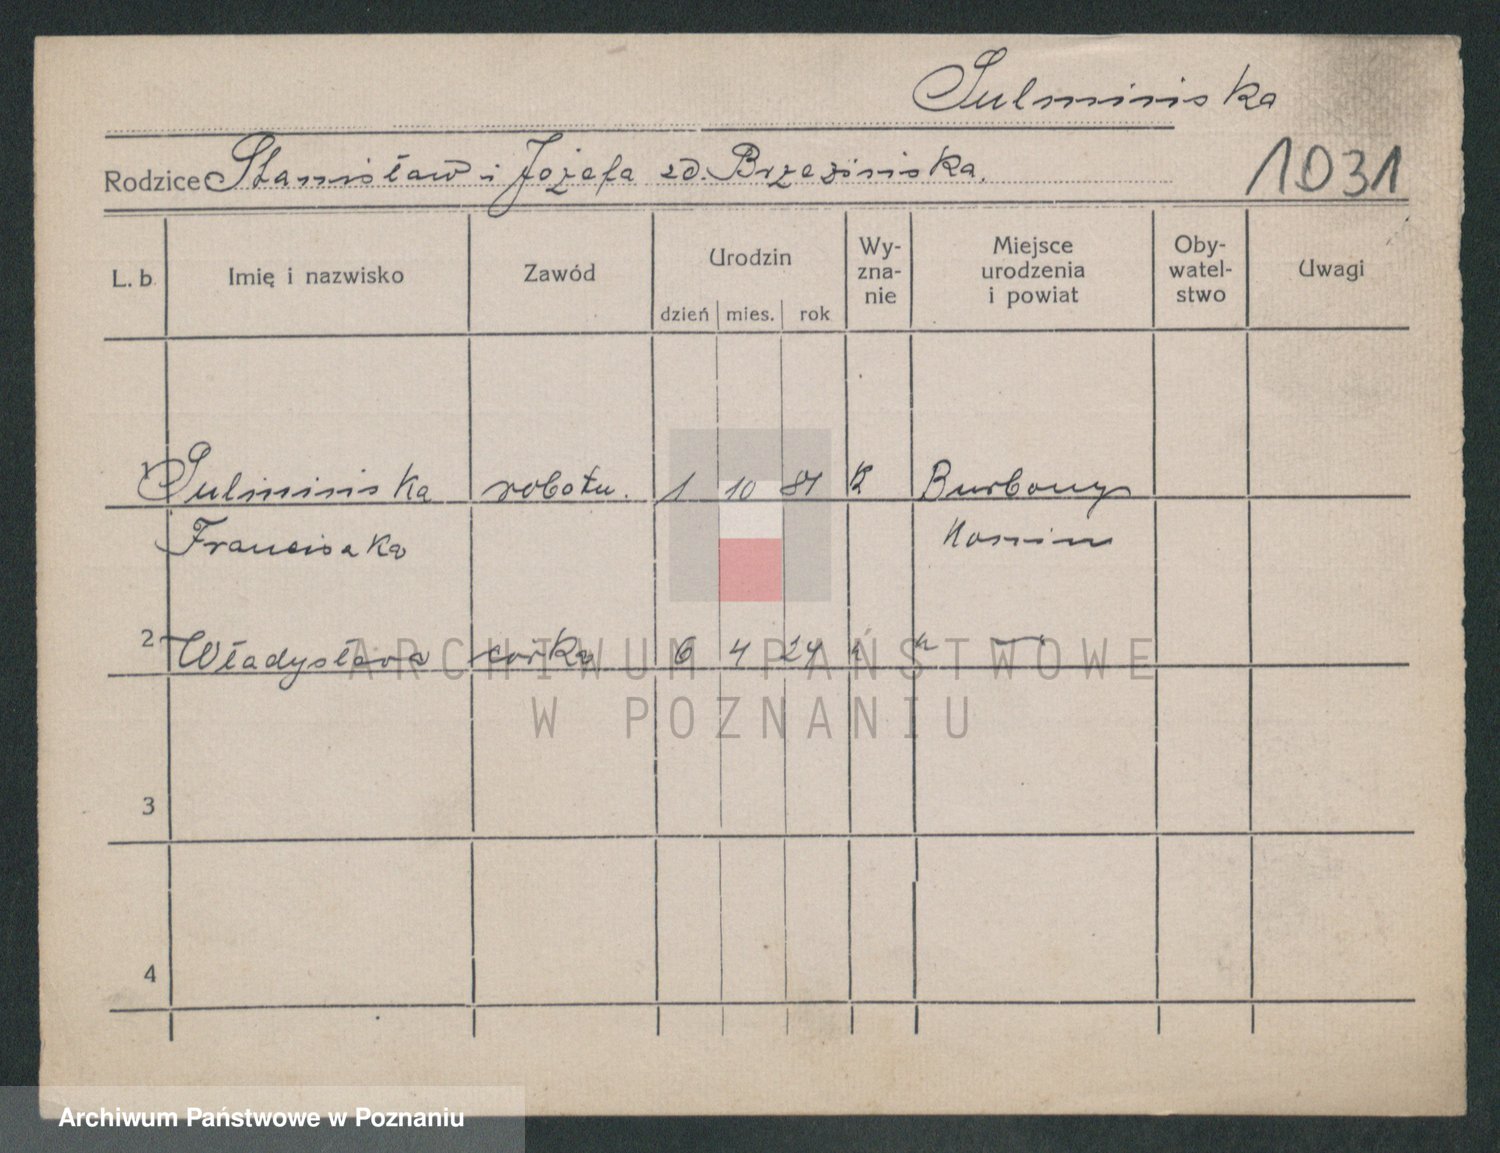 Sulminiska
Rodzice Stanisław i Józefa zd. Brzezinska.
1031
L. b. Imię i nazwisko Zawód Urodzin dzień mies. rok Wy-zna-nie Miejsce urodzenia i powiat Oby-watel-stwo Uwagi
1 Sulminiska robotn. 1 10 81 K Burbony
Franciszka Konin
2 Władysława córka 6 4 24 " " — "
3
4
ARCHIWUM PAŃSTWOWE
W POZNANIU
Archiwum Państwowe w Poznaniu